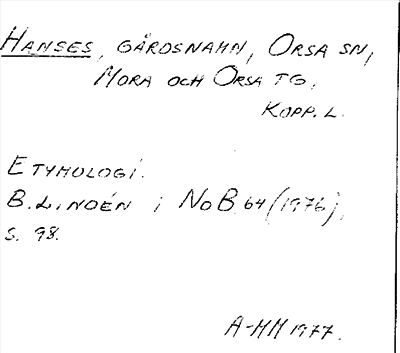 HANSES, GÅRDSNAMN, ORSA SN,
MORA OCH ORSA TG,
KOPP. L.
ETYMOLOGI.
B. LINDÉN i NoB 64 (1976),
S. 98.
A-MM 1977.